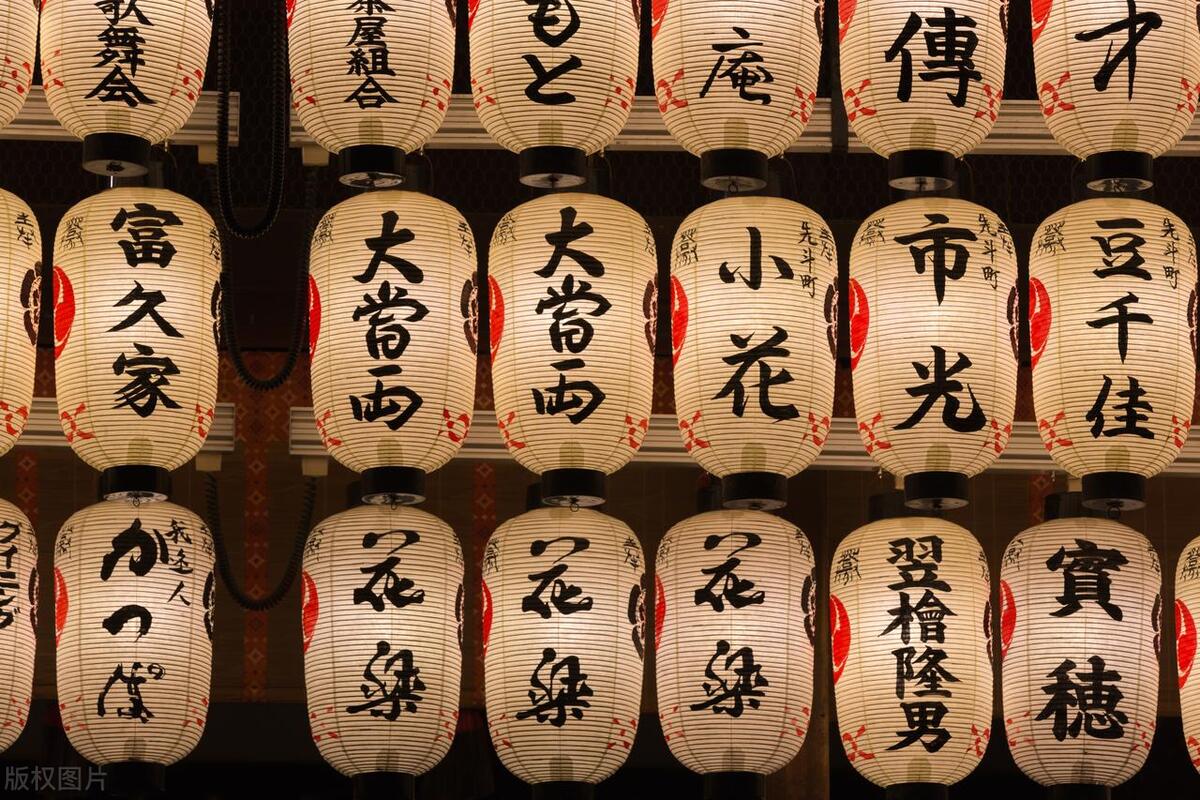 歌舞会
茶屋組合
もと
庵
傳
才
富久家
大當両
大當両
先斗町
小花
先斗町
市光
先斗町
豆千佳
我逢人
かっぱ
花梁
花梁
花梁
翌檜隆男
實穂
版权图片